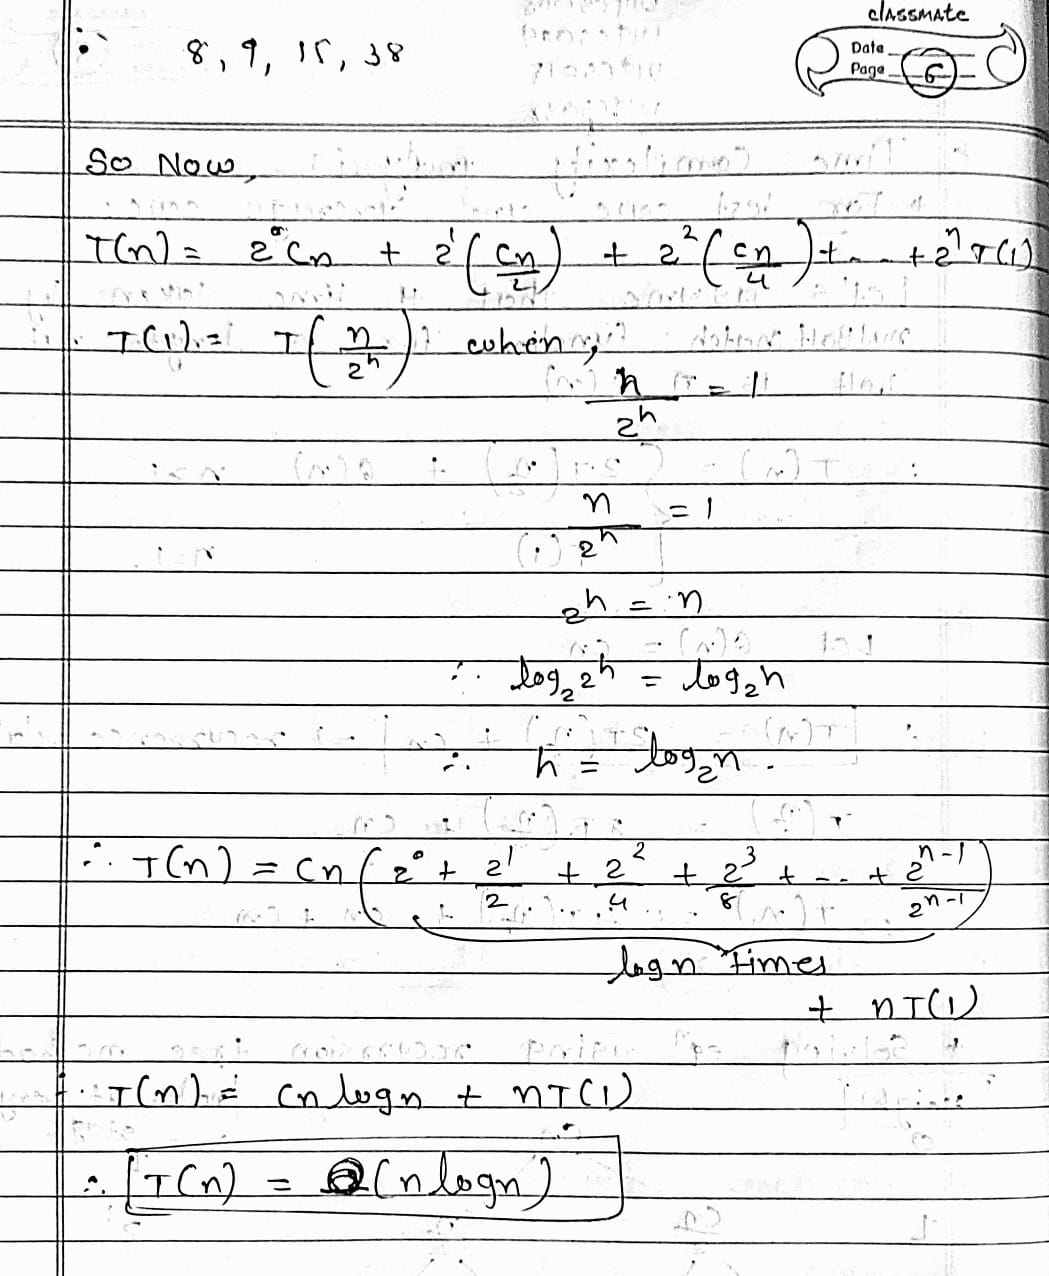 classmate
Date
Page 6
∴ 8, 9, 15, 38
So Now,
T(n) = 2⁰cn + 2¹(cn/2) + 2²(cn/4) + ... + 2ʰT(1)
T(1) = T(n/2ʰ) when,
n/2ʰ = 1
n/2ʰ = 1
2ʰ = n
∴ log₂2ʰ = log₂n
∴ h = log₂n.
∴ T(n) = cn(2⁰ + 2¹/2 + 2²/4 + 2³/8 + ... + 2ʰ⁻¹/2ʰ⁻¹)
logn times
+ nT(1)
∴ T(n) = cnlogn + nT(1)
∴ T(n) = Θ(nlogn)